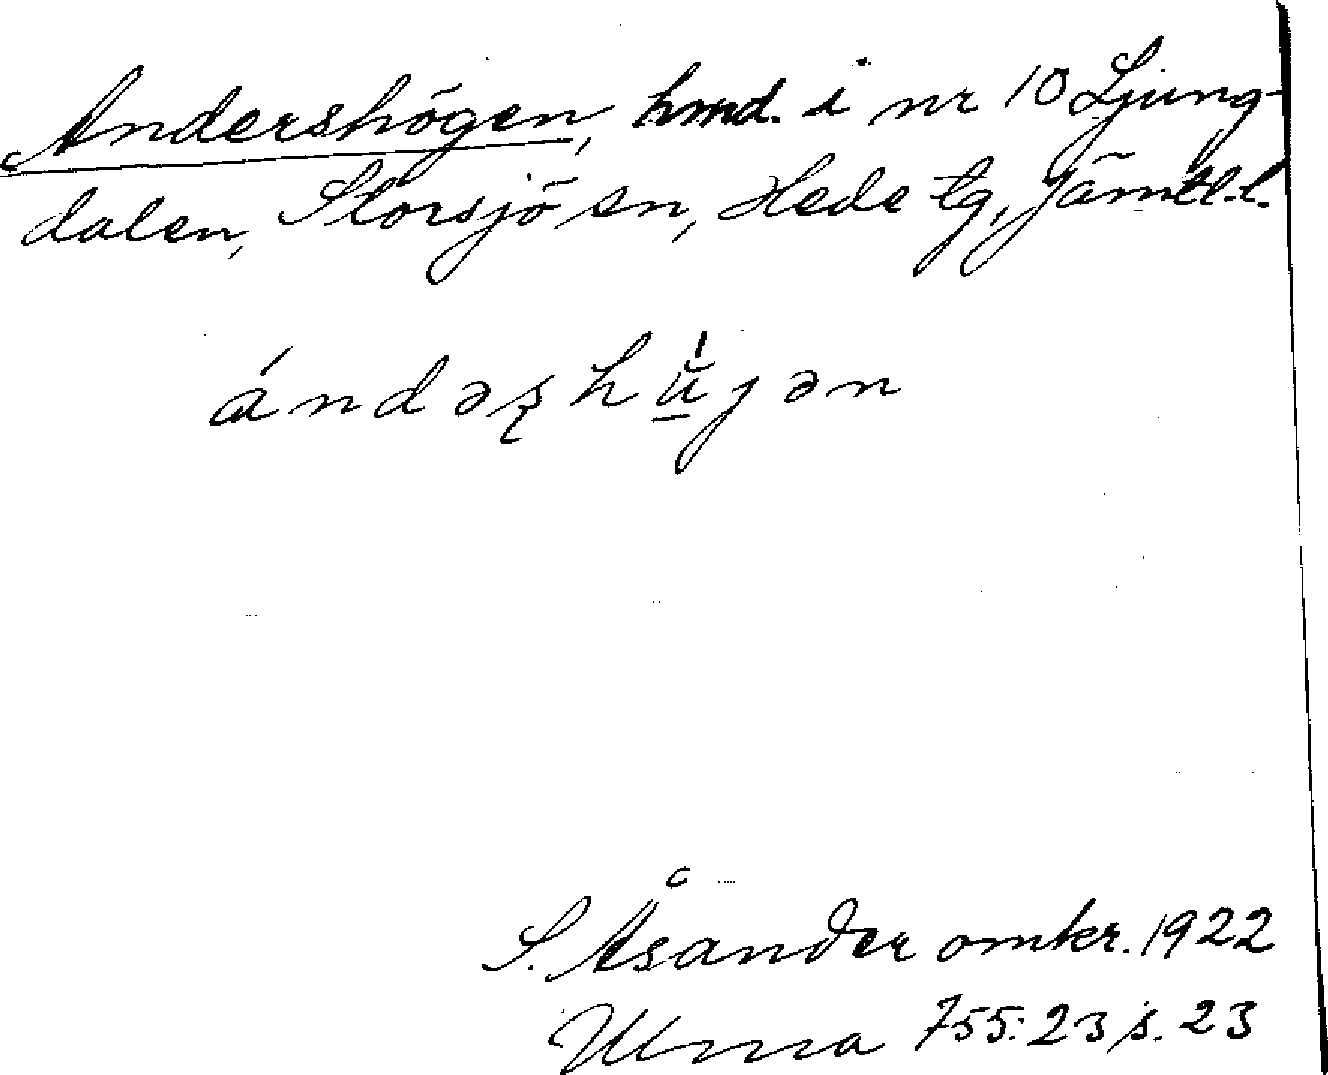 Andershögen, hmd. i nr 10 Ljung-
dalen, Storsjö sn, Hede tg, Jämtl.l.
ándəʂhŭ̱́jən
S. Åsander omkr. 1922
Ulma 755:23 s. 23